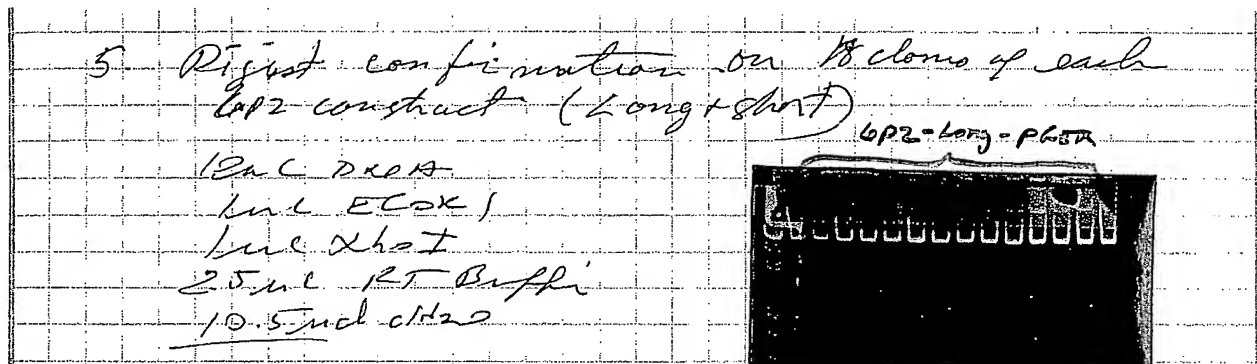 5. Digest confirmation on 18 clones of each
GP2 construct (Long + short)
GP2-Long-
DNA
1 uL ECOR I
1 uL Xho I
2.5 uL Buffer
10.5 uL dH2O